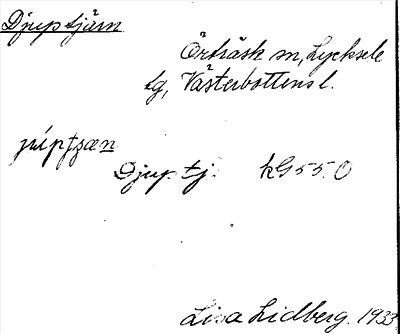 Djuptjärn
Örträsk sn, Lycksele
tg, Västerbottens l.
Djuptj. kG 55 O
Lisa Lidberg. 1933